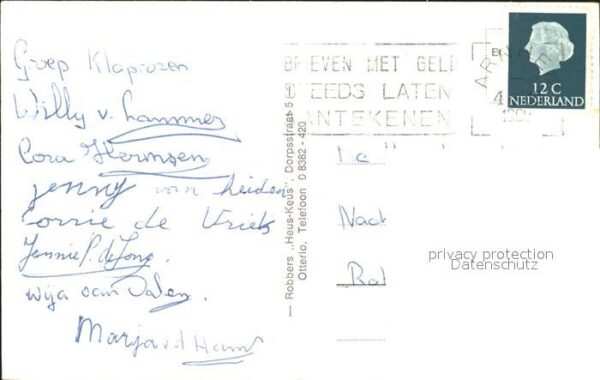 Groep Klaprozen
Willy v. Lammes
Cora Hermsen
Jenny van heiden
Corrie de Vries
Jennie P. de Jong.
Wija van Dalen.
Marja v.d. Ham
— Robbers „Heus-Keus", Dorpsstraat 5
Otterlo, Telefoon 0 8382 - 420
BRIEVEN MET GELD
STEEDS LATEN
AANTEKENEN
AR
4
12 C
NEDERLAND
De
Nach
privacy protection
Datenschutz